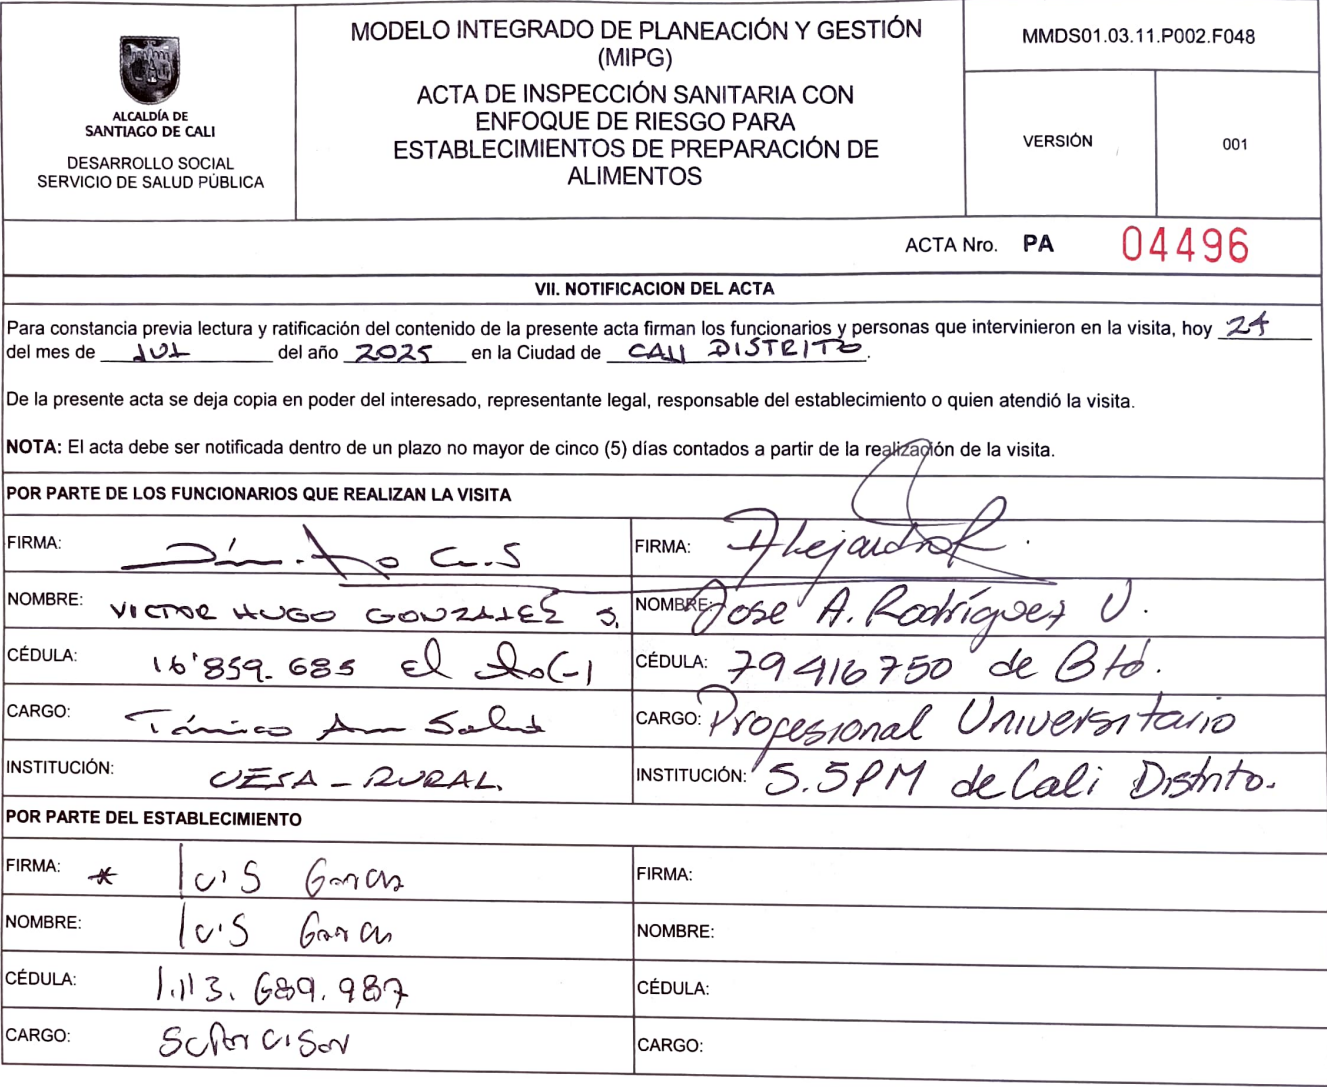 ALCALDÍA DE
SANTIAGO DE CALI
DESARROLLO SOCIAL
SERVICIO DE SALUD PÚBLICA
MODELO INTEGRADO DE PLANEACIÓN Y GESTIÓN
(MIPG)
ACTA DE INSPECCIÓN SANITARIA CON
ENFOQUE DE RIESGO PARA
ESTABLECIMIENTOS DE PREPARACIÓN DE
ALIMENTOS
MMDS01.03.11.P002.F048
VERSIÓN 001
ACTA Nro. PA 04496
VII. NOTIFICACION DEL ACTA
Para constancia previa lectura y ratificación del contenido de la presente acta firman los funcionarios y personas que intervinieron en la visita, hoy 24
del mes de JUL del año 2025 en la Ciudad de CALI DISTRITO.
De la presente acta se deja copia en poder del interesado, representante legal, responsable del establecimiento o quien atendió la visita.
NOTA: El acta debe ser notificada dentro de un plazo no mayor de cinco (5) días contados a partir de la realización de la visita.
POR PARTE DE LOS FUNCIONARIOS QUE REALIZAN LA VISITA
FIRMA: FIRMA: AlejandroR.
NOMBRE: VICTOR HUGO GONZALEZ S. NOMBRE: Jose A. Rodríguez V.
CÉDULA: 16'859.685 El CÉDULA: 79416750 de Btá.
CARGO: Técnico Salud CARGO: Profesional Universitario
INSTITUCIÓN: UESA - RURAL. INSTITUCIÓN: S.SPM de Cali Distrito.
POR PARTE DEL ESTABLECIMIENTO
FIRMA: * luis Garcia FIRMA:
NOMBRE: luis Garcia NOMBRE:
CÉDULA: 1.113.689.987 CÉDULA:
CARGO: SuPervisor CARGO: